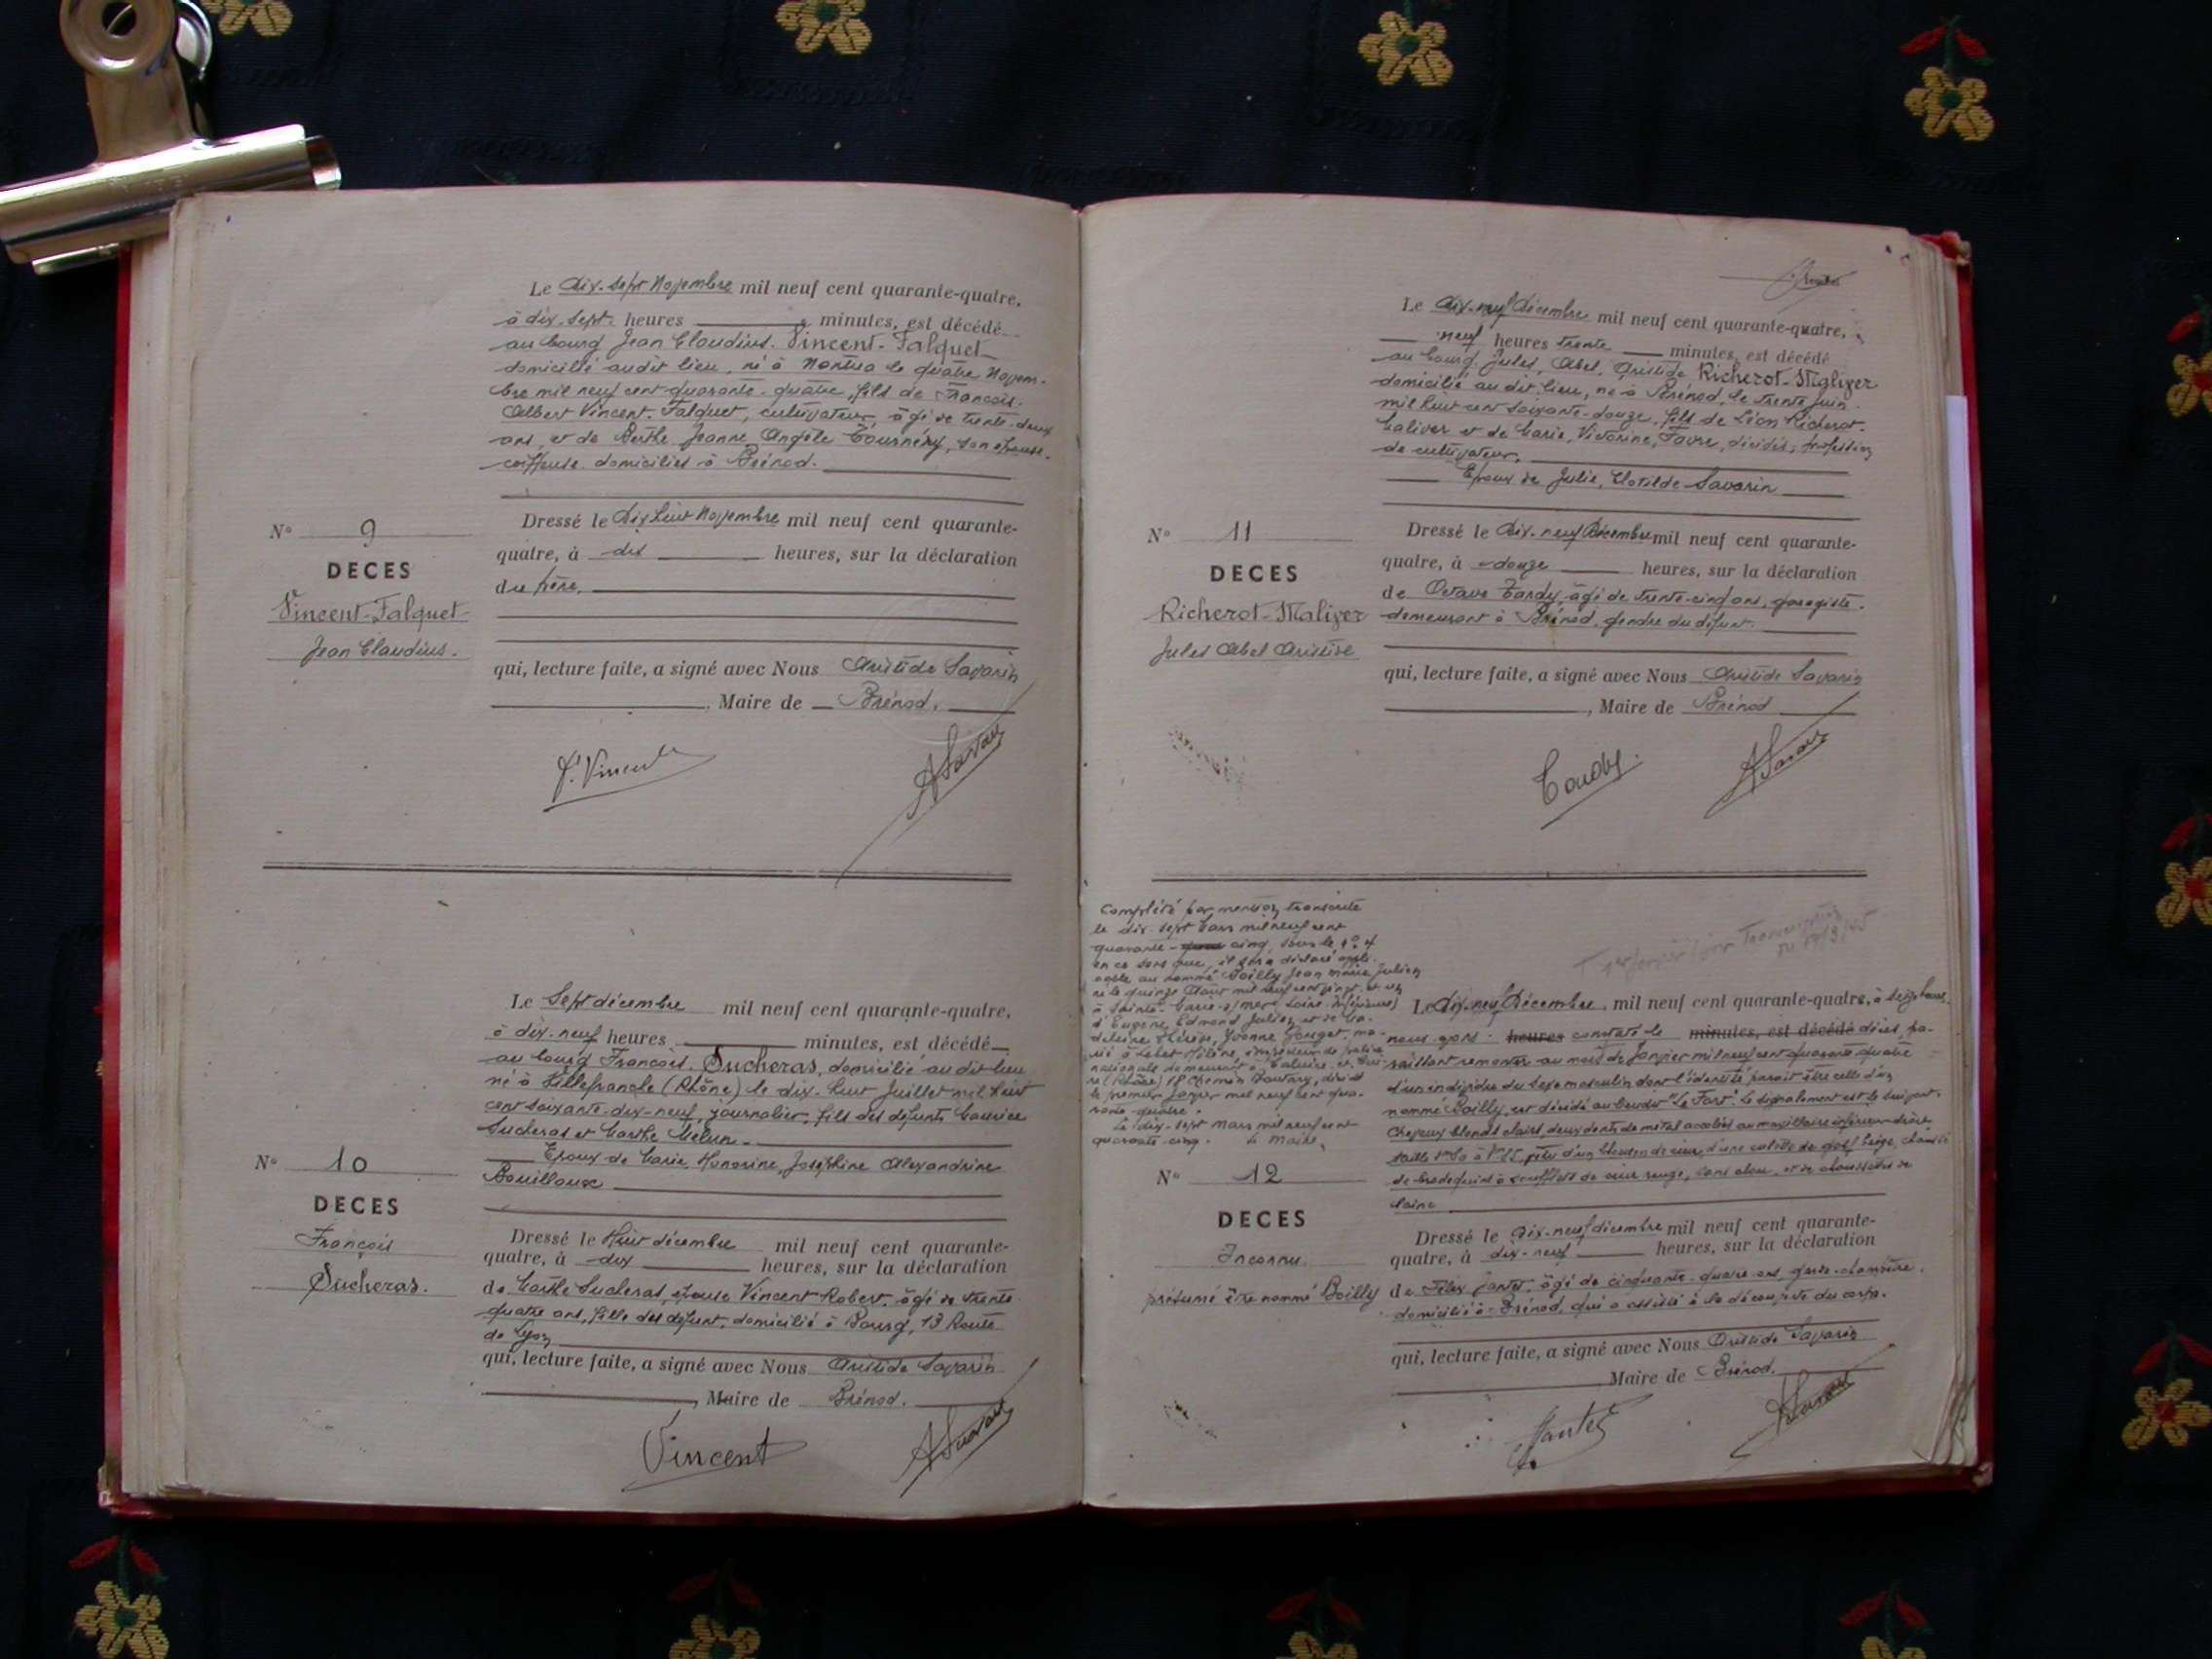 Le dix-sept Novembre mil neuf cent quarante-quatre,
à dix-sept heures minutes, est décédé
au bourg Jean Claudius Vincent-Falquet
domicilié audit lieu, né à Nantua le quatre Novem-
bre mil neuf cent quarante-quatre, fils de François
Albert Vincent-Falquet, cultivateur, âgé de trente-deux
ans, et de Berthe Jeanne Angèle Tournéry, son épouse,
coiffeuse domiciliés à Brénod.
N° 9
DECES
Vincent-Falquet
Jean Claudius.
Dressé le dix huit Novembre mil neuf cent quarante-
quatre, à dix heures, sur la déclaration
du père,
qui, lecture faite, a signé avec Nous Aristide Savarin
, Maire de Brénod.
F. Vincent
A Savarin
Le Sept décembre mil neuf cent quarante-quatre,
à dix-neuf heures minutes, est décédé
au bourg François Sucheras, domicilié au dit lieu
né à Villefranche (Rhône) le dix-huit Juillet mil huit
cent soixante-dix-neuf, journalier, fils des défunts Maurice
Sucheras et Marthe Melun.
Epoux de Marie Honorine, Joséphine Alexandrine
Bouilloux
N° 10
DECES
François
Sucheras.
Dressé le Huit décembre mil neuf cent quarante-
quatre, à dix heures, sur la déclaration
de Marthe Sucheras, épouse Vincent Robert, âgé de trente
quatre ans, fille du défunt, domicilié à Bourg, 13 Route
de Lyon
qui, lecture faite, a signé avec Nous Aristide Savarin
, Maire de Brénod.
Vincent
A Savarin
Le dix-neuf Décembre mil neuf cent quarante-quatre,
neuf heures trente minutes, est décédé
au bourg Jules, Abel, Aristide Richerot-Maliver
domicilié au dit lieu, né à Brénod, le trente Juin
mil huit cent soixante-douze, fils de Léon Richerot-
Maliver et de Marie, Victorine, Favre, décédés, profession
de cultivateur.
Epoux de Julie, Clotilde Savarin
N° 11
DECES
Richerot-Maliver
Jules Abel Aristide
Dressé le Dix-neuf Décembre mil neuf cent quarante-
quatre, à douze heures, sur la déclaration
de Octave Tardy, âgé de trente-cinq ans, garagiste
demeurant à Brénod, gendre du défunt.
qui, lecture faite, a signé avec Nous Aristide Savarin
, Maire de Brénod
Tardy
A Savarin
Complété par mention transcrite
le dix-sept Mars mil neuf cent
quarante- cinq, sous le n° 4
en ce sens que, il sera déclaré appli-
cable au nommé Boilly Jean Marie Julien
né le quinze Août mil neuf cent vingt et un
à Sainte-Marie-s/mer (Loire-Inférieure)
d'Eugène Edmond Julien et de Ma-
deleine Thérèse, Yvonne Gouget, ma-
rié à Hélène,
nationale demeurant à Caluire-et-Cui-
re (Rhône) 18 Chemin décédé
le premier Janvier mil neuf cent qua-
rante-quatre.
Le dix-sept Mars mil neuf cent
quarante-cinq. Le Maire,
Transcription
du 17/3/45
Le Dix-neuf Décembre mil neuf cent quarante-quatre, à seize heures
nous avons heures constaté le minutes, est décédé décès, pa-
raissant remonter au mois de Janvier mil neuf cent quarante quatre
d'un individu du sexe masculin dont l'identité parait être celle d'un
nommé Boilly, est décédé au lieudit "Le Fort". Le signalement est le suivant:
Cheveux blonds clairs, deux dents de métal accolées au maxillaire inférieur droit
taille 1m50 à 1m55, vêtu d'un blouson de cuir, d'une culotte de golf beige, chaussé
de brodequins à soufflets de cuir rouge, sans clou, et de chaussettes de
laine
N° 12
DECES
Inconnu.
présumé être nommé Boilly
Dressé le Dix-neuf décembre mil neuf cent quarante-
quatre, à dix-neuf heures, sur la déclaration
de Félix Jantet, âgé de cinquante-quatre ans, garde-champêtre,
domicilié à Brénod, qui a assisté à la découverte du corps.
qui, lecture faite, a signé avec Nous Aristide Savarin
Maire de Brénod.
Jantet
A Savarin